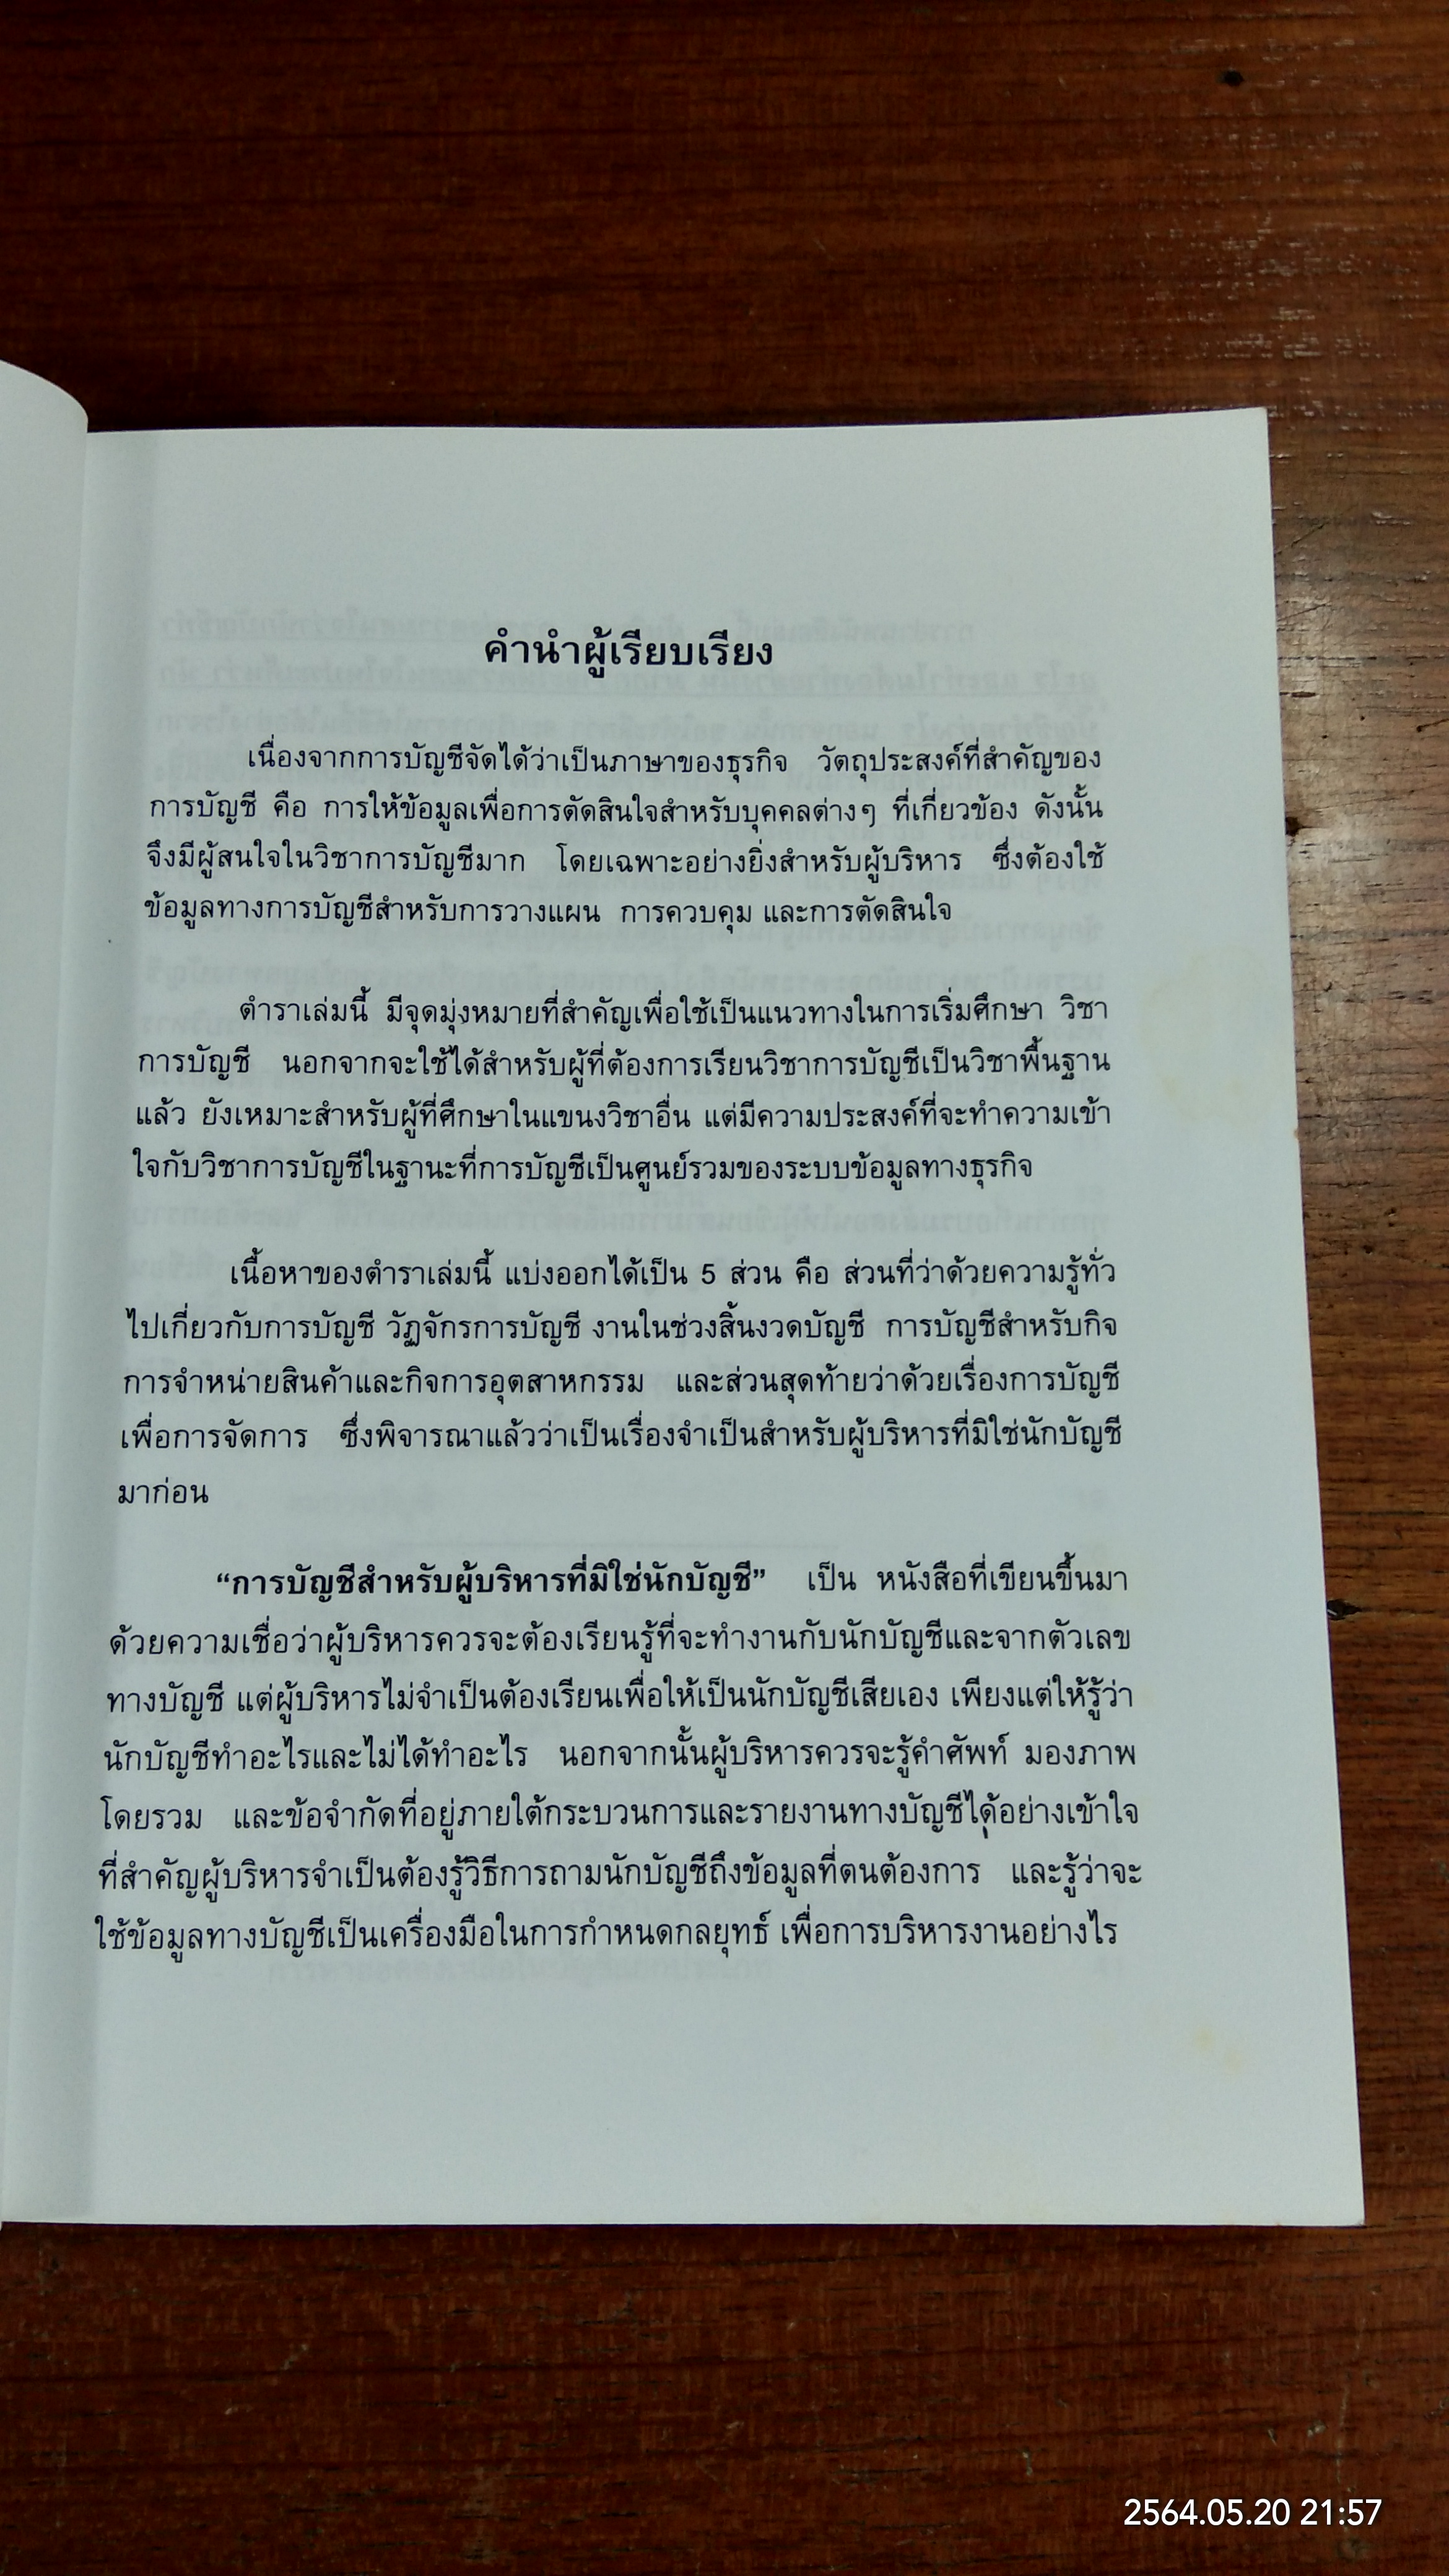 คำนำผู้เรียบเรียง
เนื่องจากการบัญชีจัดได้ว่าเป็นภาษาของธุรกิจ วัตถุประสงค์ที่สำคัญของ
การบัญชี คือ การให้ข้อมูลเพื่อการตัดสินใจสำหรับบุคคลต่างๆ ที่เกี่ยวข้อง ดังนั้น
จึงมีผู้สนใจในวิชาการบัญชีมาก โดยเฉพาะอย่างยิ่งสำหรับผู้บริหาร ซึ่งต้องใช้
ข้อมูลทางการบัญชีสำหรับการวางแผน การควบคุม และการตัดสินใจ
ตำราเล่มนี้ มีจุดมุ่งหมายที่สำคัญเพื่อใช้เป็นแนวทางในการเริ่มศึกษา วิชา
การบัญชี นอกจากจะใช้ได้สำหรับผู้ที่ต้องการเรียนวิชาการบัญชีเป็นวิชาพื้นฐาน
แล้ว ยังเหมาะสำหรับผู้ที่ศึกษาในแขนงวิชาอื่น แต่มีความประสงค์ที่จะทำความเข้า
ใจกับวิชาการบัญชีในฐานะที่การบัญชีเป็นศูนย์รวมของระบบข้อมูลทางธุรกิจ
เนื้อหาของตำราเล่มนี้ แบ่งออกได้เป็น 5 ส่วน คือ ส่วนที่ว่าด้วยความรู้ทั่ว
ไปเกี่ยวกับการบัญชี วัฏจักรการบัญชี งานในช่วงสิ้นงวดบัญชี การบัญชีสำหรับกิจ
การจำหน่ายสินค้าและกิจการอุตสาหกรรม และส่วนสุดท้ายว่าด้วยเรื่องการบัญชี
เพื่อการจัดการ ซึ่งพิจารณาแล้วว่าเป็นเรื่องจำเป็นสำหรับผู้บริหารที่มิใช่นักบัญชี
มาก่อน
“การบัญชีสำหรับผู้บริหารที่มิใช่นักบัญชี” เป็น หนังสือที่เขียนขึ้นมา
ด้วยความเชื่อว่าผู้บริหารควรจะต้องเรียนรู้ที่จะทำงานกับนักบัญชีและจากตัวเลข
ทางบัญชี แต่ผู้บริหารไม่จำเป็นต้องเรียนเพื่อให้เป็นนักบัญชีเสียเอง เพียงแต่ให้รู้ว่า
นักบัญชีทำอะไรและไม่ได้ทำอะไร นอกจากนั้นผู้บริหารควรจะรู้คำศัพท์ มองภาพ
โดยรวม และข้อจำกัดที่อยู่ภายใต้กระบวนการและรายงานทางบัญชีได้อย่างเข้าใจ
ที่สำคัญผู้บริหารจำเป็นต้องรู้วิธีการถามนักบัญชีถึงข้อมูลที่ตนต้องการ และรู้ว่าจะ
ใช้ข้อมูลทางบัญชีเป็นเครื่องมือในการกำหนดกลยุทธ์ เพื่อการบริหารงานอย่างไร
2564.05.20 21:57